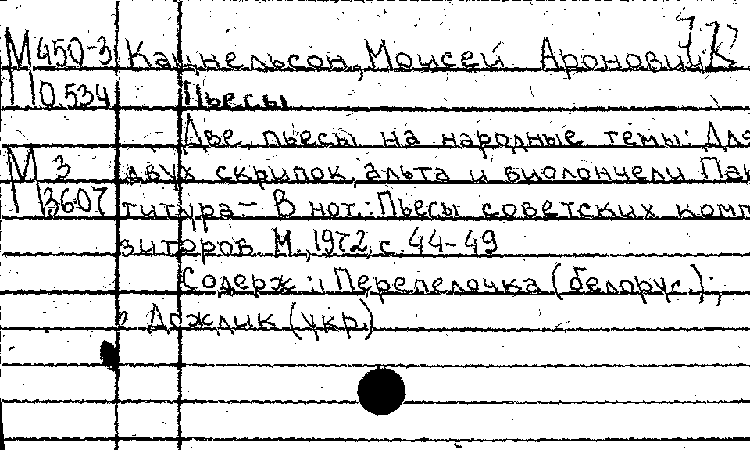 М450-3 Кацнельсон, Моисей Аронович
П0.534 Пьесы
Две пьесы на народные темы: Для
М 3 двух скрипок, альта и виолончели Пар
П3607 титура – В нот.: Пьесы советских комп
зиторов М., 1972, с. 44-49
Содерж.: Перепелочка (белорус.);
Дождик (укр.)